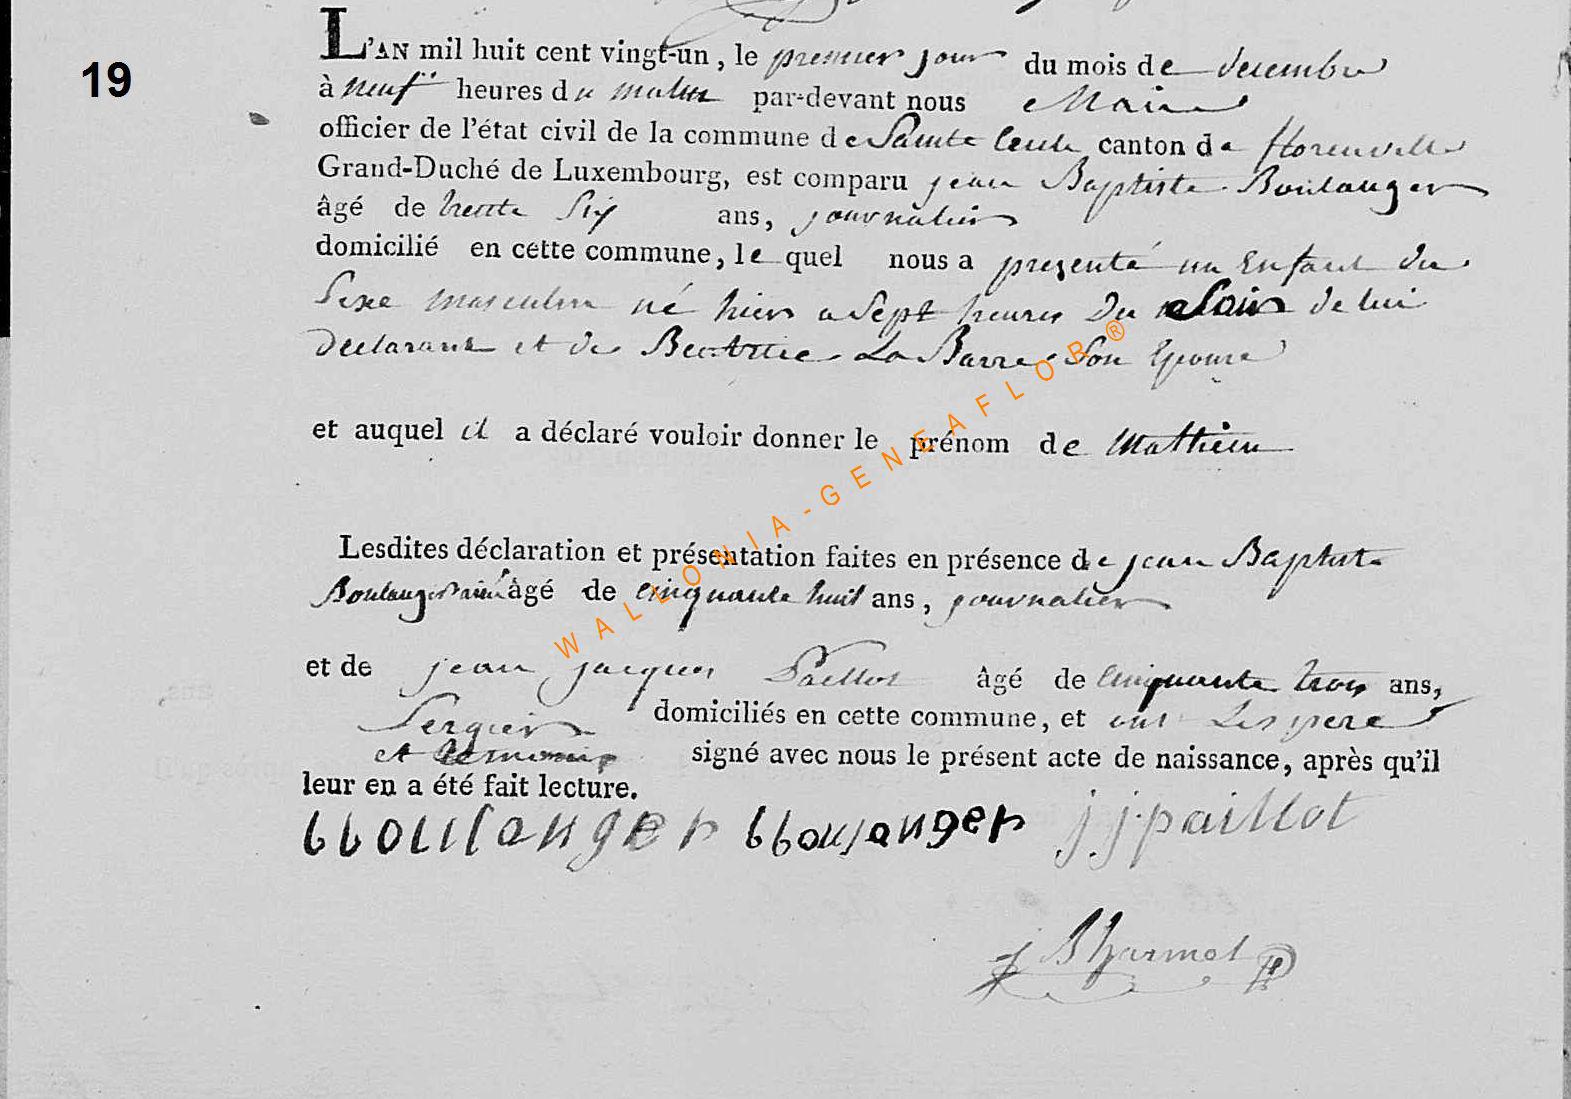 19
L'AN mil huit cent vingt-un, le premier jour du mois de decembre
à neuf heures du matin par-devant nous Maire
officier de l'état civil de la commune de Sainte Cecile canton de florenville
Grand-Duché de Luxembourg, est comparu jean Baptiste Boulanger
âgé de trente Six ans, journalier
domicilié en cette commune, le quel nous a presenté un Enfant du
Sexe masculin né hier a Sept heures Du Soir de lui
Declarant et de Beatrice La Barre Son Epouse
et auquel il a déclaré vouloir donner le prénom de Mathieu
Lesdites déclaration et présentation faites en présence de jean Baptiste
Boulanger ainé âgé de cinquante huit ans, journalier
et de jean jacques Paillot âgé de cinquante trois ans,
Sergier domiciliés en cette commune, et ont Les pere
et temoins signé avec nous le présent acte de naissance, après qu'il
leur en a été fait lecture.
bboulanger bboulanger jjpaillot
WALLONIA-GENEAFLOB®